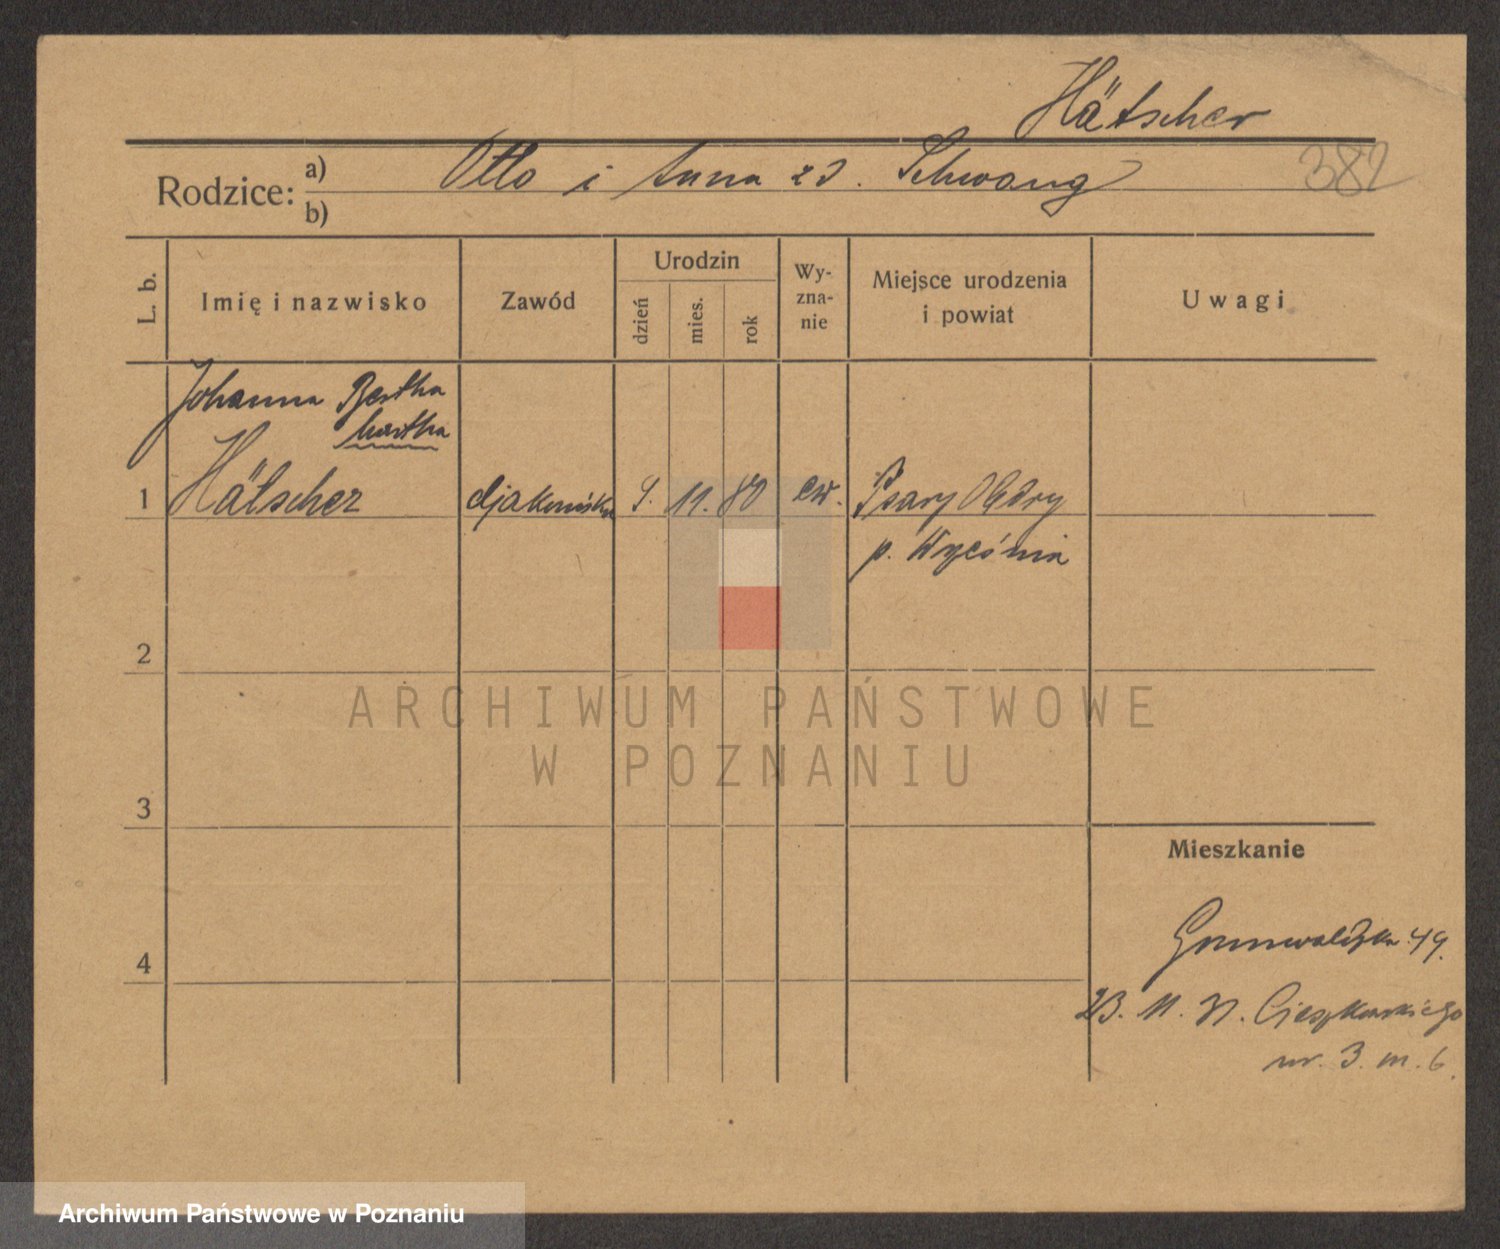 Hätscher
Rodzice: a) Otto i Anna zd. Schwang 382
b)
L. b. Imię i nazwisko Zawód Urodzin dzień mies. rok Wy-zna-nie Miejsce urodzenia i powiat Uwagi
Johanna Bertha
Martha
1 Hätscher djakoniska 9. 11. 80 ew. Psary Olędry
p.
2
ARCHIWUM PAŃSTWOWE
W POZNANIU
3
Mieszkanie
4 Grunwaldzka 49.
23. 11. 31. Cieszkowskiego
nr. 3. m. 6.
Archiwum Państwowe w Poznaniu